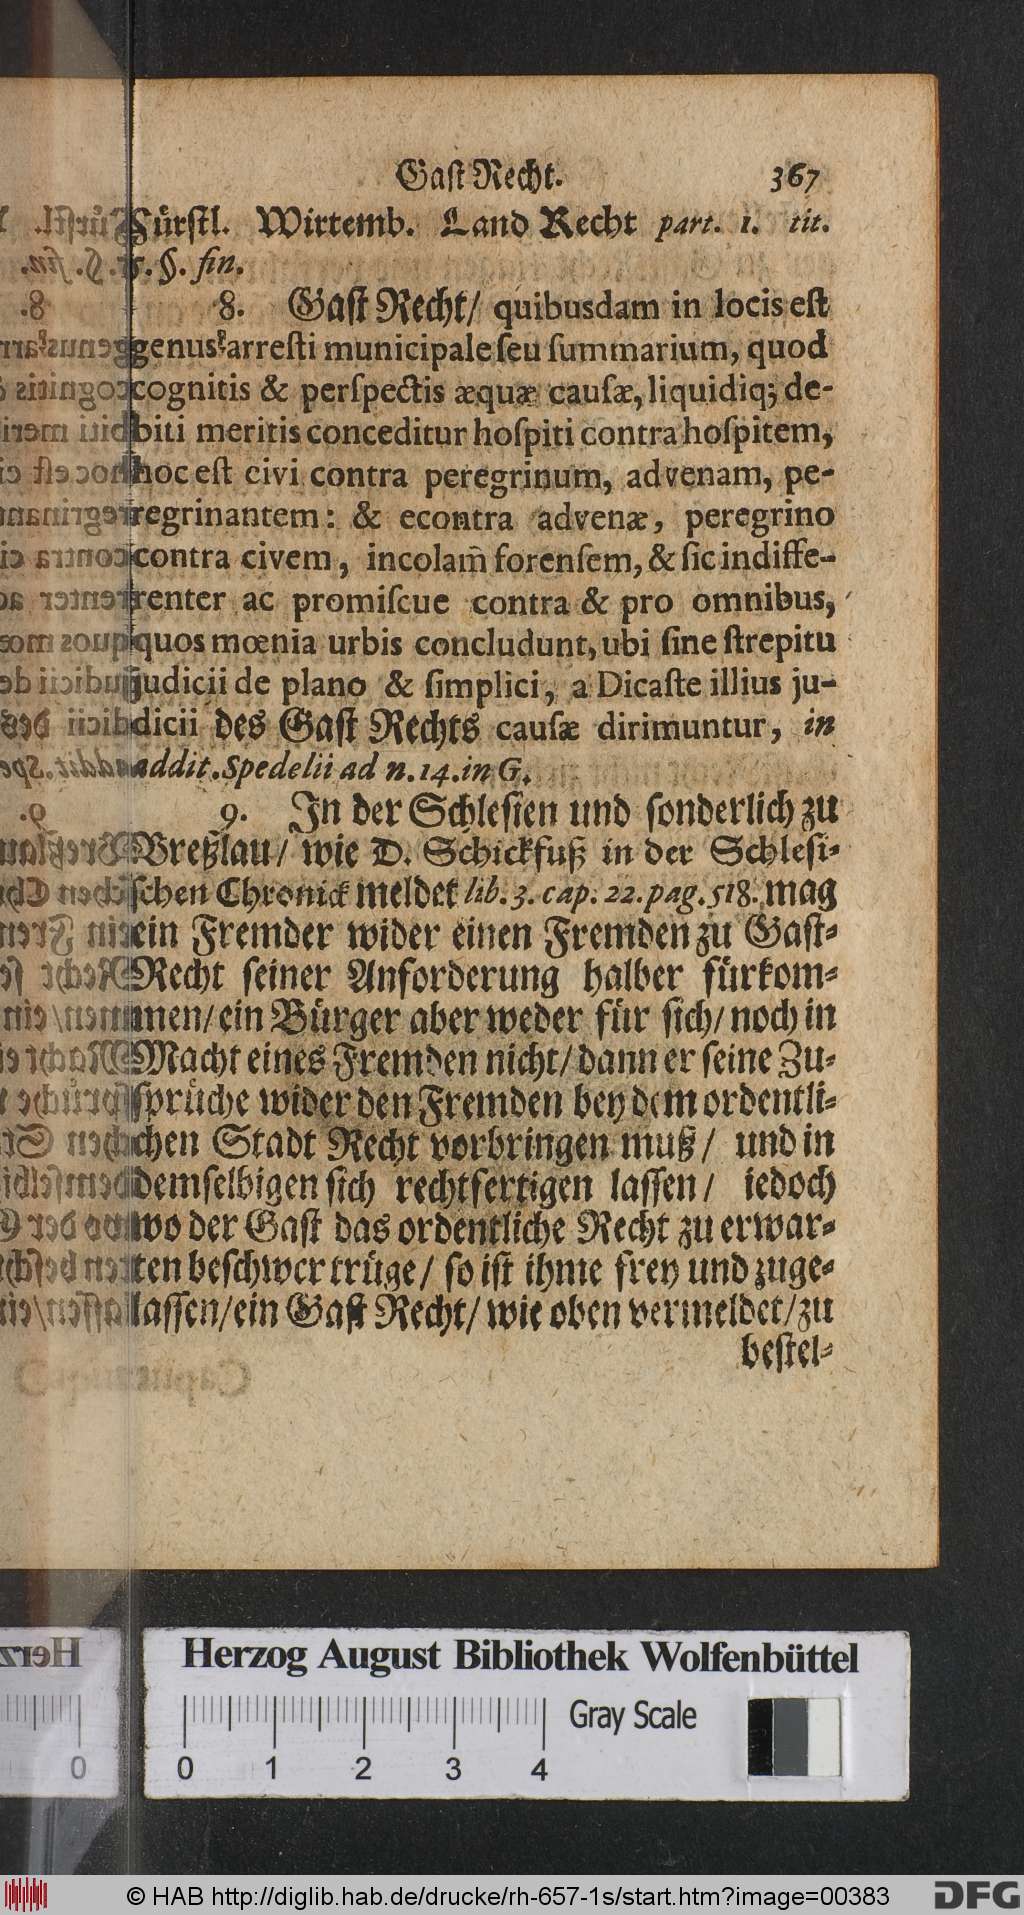 Gast Recht. 367
Fürstl. Wirtemb. Land Recht part. 1. tit.
5. §. fin.
8. Gast Recht/ quibusdam in locis est
genus arresti municipale seu summarium, quod
cognitis & perspectis æquæ causæ, liquidiq; de-
biti meritis conceditur hospiti contra hospitem,
hoc est civi contra peregrinum, advenam, pe-
regrinantem: & econtra advenæ, peregrino
contra civem, incolam̃ forensem, & sic indiffe-
renter ac promiscue contra & pro omnibus,
quos mœnia urbis concludunt, ubi sine strepitu
judicii de plano & simplici, a Dicaste illius ju-
dicii des Gast Rechts causæ dirimuntur, in
addit. Spedelii ad n. 14. in G.
9. In der Schlesien und sonderlich zu
Breßlau/ wie D. Schickfuß in der Schlesi-
schen Chronick meldet lib. 3. cap. 22. pag. 518. mag
ein Fremder wider einen Fremden zu Gast-
Recht seiner Anforderung halber fürkom-
men/ ein Bürger aber weder für sich/ noch in
Macht eines Fremden nicht/ dann er seine Zu-
sprüche wider den Fremden bey dem ordentli-
chen Stadt Recht vorbringen muß/ und in
demselbigen sich rechtfertigen lassen/ iedoch
wo der Gast das ordentliche Recht zu erwar-
ten beschwer trüge/ so ist ihme frey und zuge-
lassen/ ein Gast Recht/ wie oben vermeldet/ zu
bestel-
Herzog August Bibliothek Wolfenbüttel
Gray Scale
0 1 2 3 4
© HAB http://diglib.hab.de/drucke/rh-657-1s/start.htm?image=00383
DFG